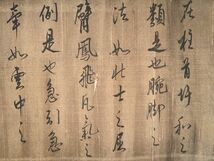 在柱首折和之
類是也腕脚之
法如壮士之屈
臂鳳飛凡氣之
例是也急引急
牽如雲中之